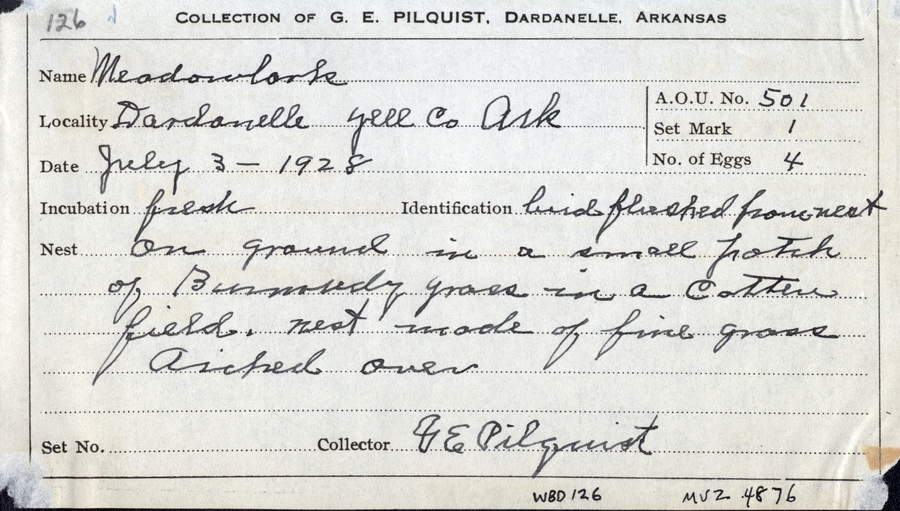 126
COLLECTION OF G. E. PILQUIST, DARDANELLE, ARKANSAS
Name Meadowlark
A.O.U. No. 501
Locality Dardanelle Yell Co Ark
Set Mark 1
Date July 3 - 1928
No. of Eggs 4
Incubation fresh Identification bird flushed from nest
Nest On ground in a small patch
of Burmudy grass in a Cotten
field. nest made of fine grass
Arched over
Set No. Collector G E Pilquist
WBD 126 MVZ 4876